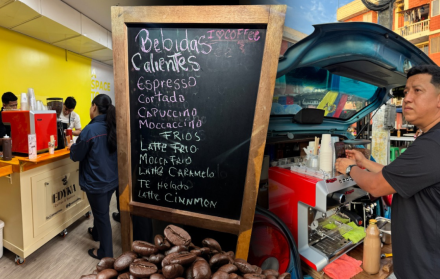 I ♡ COFFEE
Bebidas
Calientes
Espresso
Cortado
Capuccino
Moccaccino
FRIOS
Latte FRIO
Mocca FRIO
Latte CARAMELO
TE Helado
Latte CINNMON